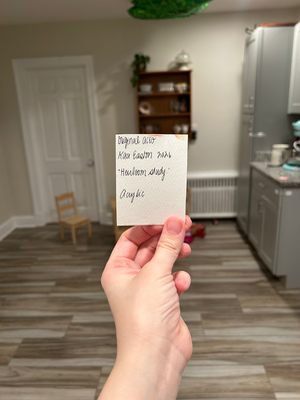 Original ACEO
Kara Easton 2026
"Heirloom study"
Acrylic